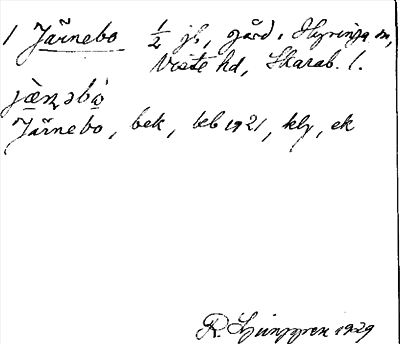 1 Järnebo 1/2 jb, gård. Hyringa sn,
Viste hd, Skarab. l.
jæ̀ɳəbó
Järnebo, bek, leb 1921, kly, ek
R. Ljunggren 1929